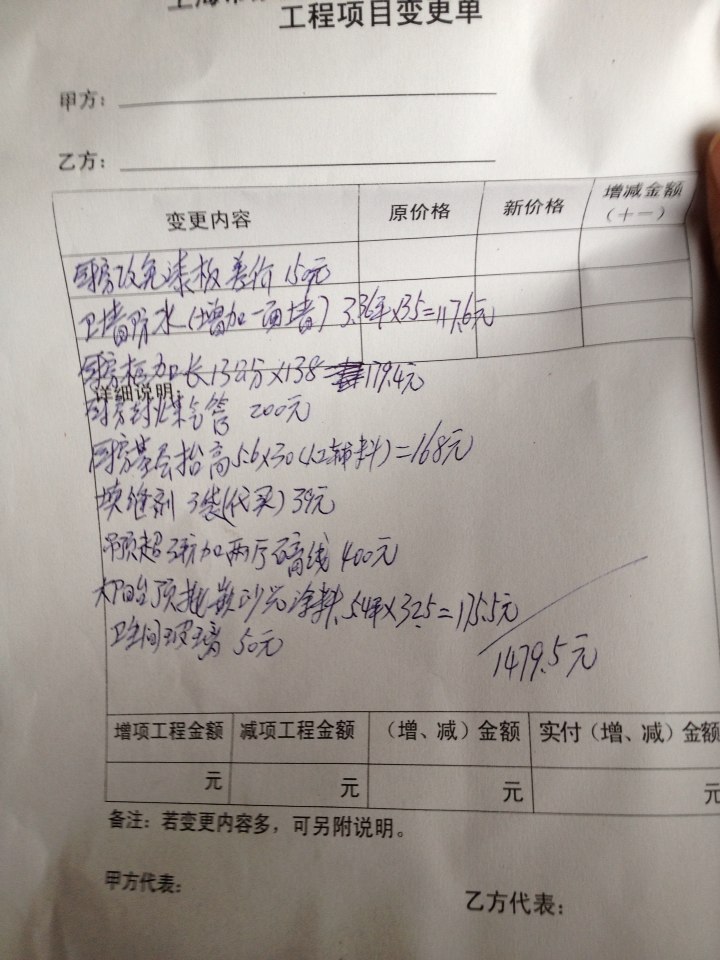 工程项目变更单
甲方：
乙方：
变更内容 原价格 新价格 增减金额（十一）
厨房改免漆板差价 150元
卫墙防水（增加一面墙）3.36平×35=117.6元
厨房柜加长13公分×138=179.4元
详细说明：
厨房封煤气管 200元
厨房基层抬高5.6×30（人工辅料）=168元
填缝剂 3袋（代买）39元
吊顶超 加两厅石膏线 400元
大阳台顶批嵌 涂料 5.4平×32.5=175.5元
卫生间玻璃 50元
1479.5元
增项工程金额 减项工程金额 （增、减）金额 实付（增、减）金额
元 元 元 元
备注：若变更内容多，可另附说明。
甲方代表： 乙方代表：